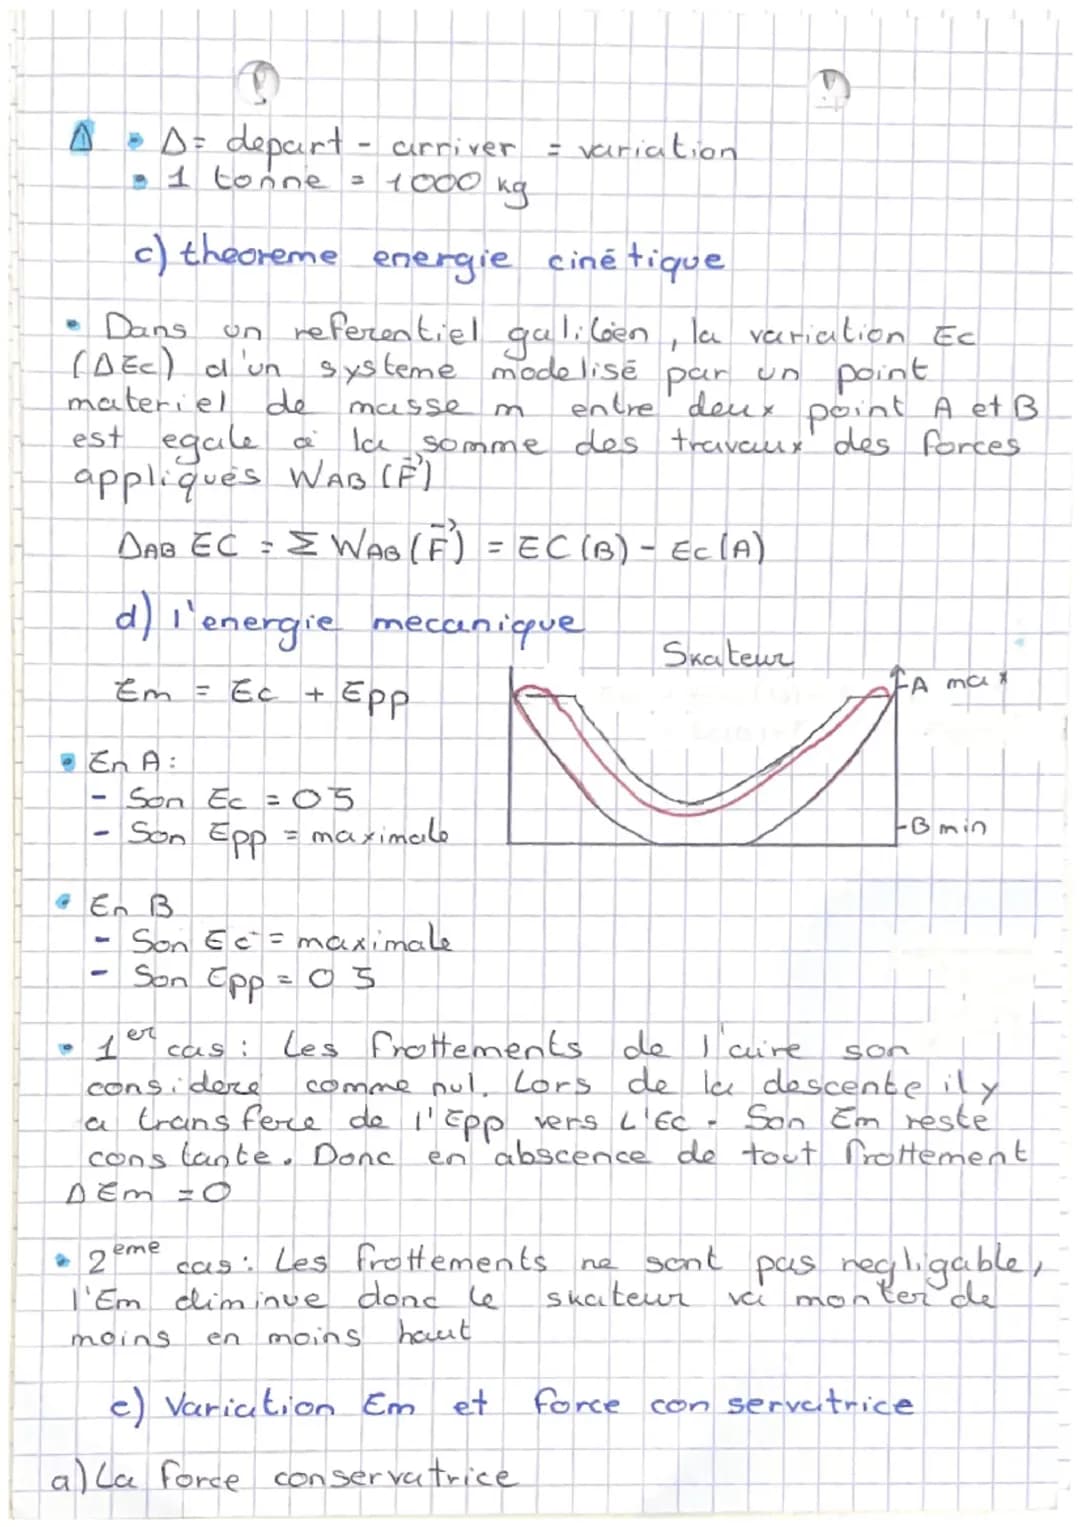 Δ • Δ= depart - arriver = variation
• 1 tonne = 1000 kg
c) theoreme energie cinétique
• Dans un referentiel galiléen, la variation Ec
(ΔEc) d'un systeme modelisé par un point
materiel de masse m entre deux point A et B
est egale à la somme des travaux des forces
appliqués WAB (F⃗)
ΔAB EC = Σ WAB (F⃗) = EC (B) - Ec (A)
d) l'energie mecanique
Skateur
Em = Ec + Epp
A max
• En A :
- Son Ec = 0 J
- Son Epp = maximale
B min
• En B
- Son Ec = maximale
- Son Epp = 0 J
• 1er cas : Les frottements de l'aire son
consideré comme nul. Lors de la descente il y
a transfere de l'Epp vers L'Ec. Son Em reste
constante. Donc en abscence de tout frottement
ΔEm = 0
• 2eme cas : Les frottements ne sont pas negligable,
l'Em diminue donc le skateur va monter de
moins en moins haut
e) Variation Em et force conservatrice
a) La force conservatrice